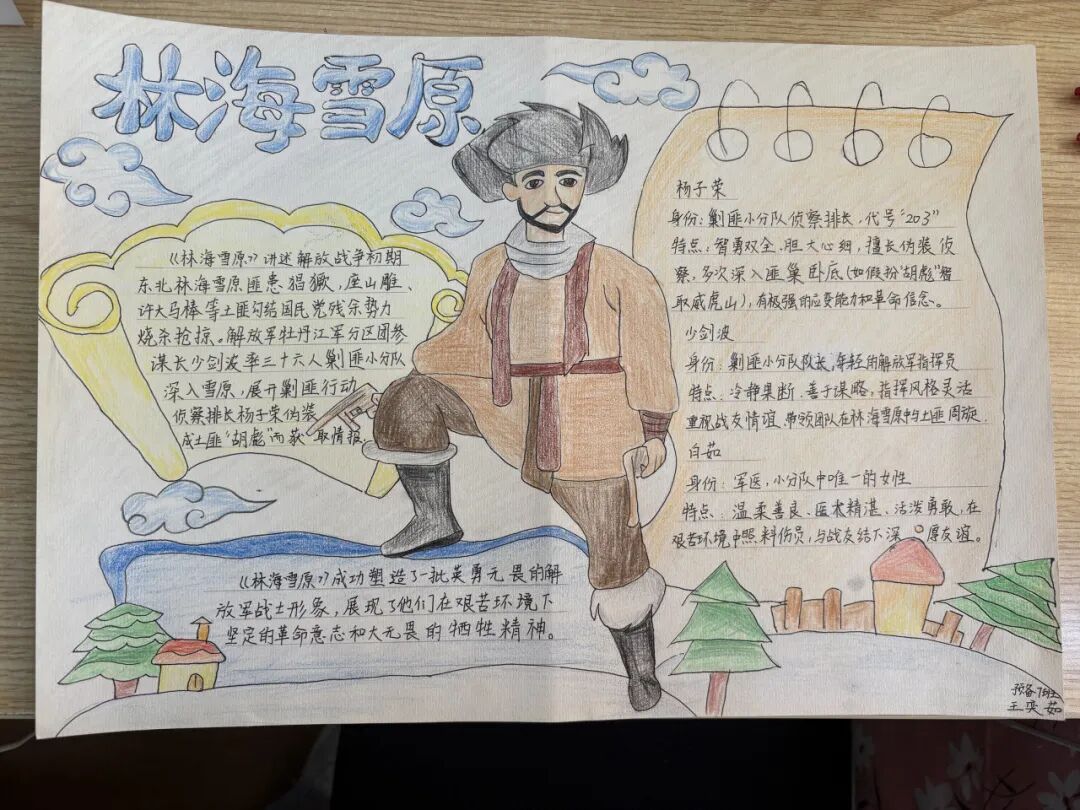 林海雪原
《林海雪原》讲述解放战争初期
东北林海雪原匪患猖獗，座山雕、
许大马棒等土匪勾结国民党残余势力
烧杀抢掠。解放军牡丹江军分区团参
谋长少剑波率三十六人剿匪小分队
深入雪原，展开剿匪行动
侦察排长杨子荣伪装
成土匪"胡彪"而获取情报。
《林海雪原》成功塑造了一批英勇无畏的解
放军战士形象，展现了他们在艰苦环境下
坚定的革命意志和大无畏的牺牲精神。
杨子荣
身份：剿匪小分队侦察排长，代号"203"
特点：智勇双全、胆大心细，擅长伪装侦
察，多次深入匪巢卧底(如假扮"胡彪"智
取威虎山)，有极强的应变能力和革命信念。
少剑波
身份：剿匪小分队队长，年轻的解放军指挥员
特点：冷静果断、善于谋略，指挥风格灵活
重视战友情谊，带领团队在林海雪原中与土匪周旋.
白茹
身份：军医，小分队中唯一的女性
特点：温柔善良、医术精湛、活泼勇敢，在
艰苦环境中照料伤员，与战友结下深厚友谊。
预备7班
王奕茹